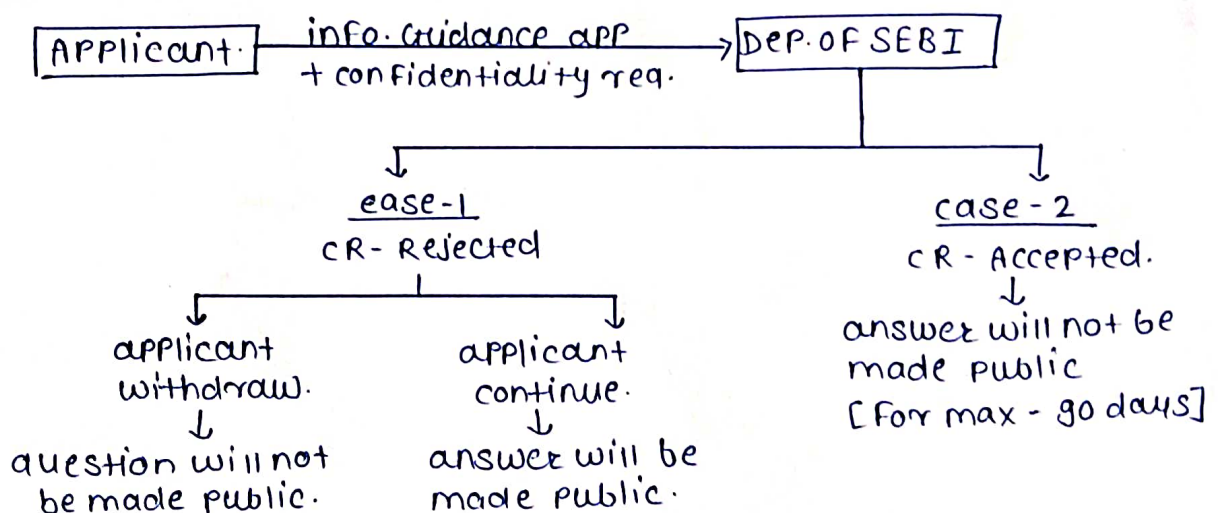 Applicant.
info. Guidance app
+ confidentiality req.
Dep. OF SEBI
case-1
CR - Rejected
case - 2
CR - Accepted.
applicant
withdraw.
question will not
be made public.
applicant
continue.
answer will be
made public.
answer will not be
made public
[For max - 90 days]